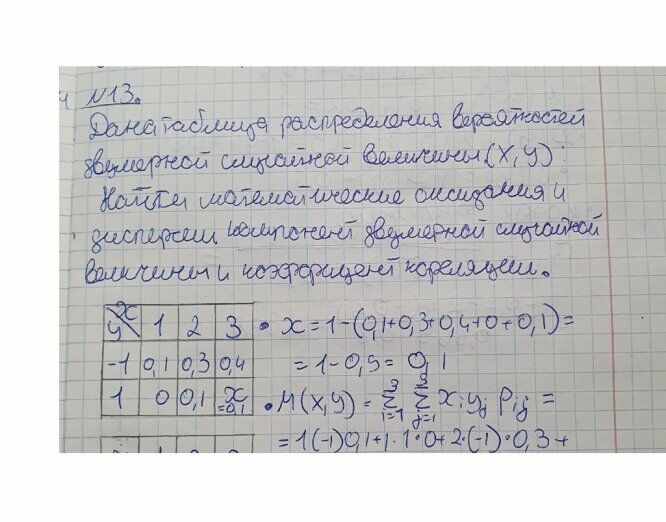 N13.
Дана таблица распределения вероятностей
двумерной случайной величины (X, Y):
Найти математические ожидания и
дисперсии компонент двумерной случайной
величины и коэффициент кореляции.
y \ x 1 2 3 • x = 1-(0,1+0,3+0,4+0+0,1)=
-1 0,1 0,3 0,4 = 1-0,9 = 0,1
1 0 0,1 x =0,1 • M(X,Y) = 3 Σ i=1 3 Σ j=1 x i y j p ij =
= 1(-1)0,1+1·1·0+2·(-1)·0,3+